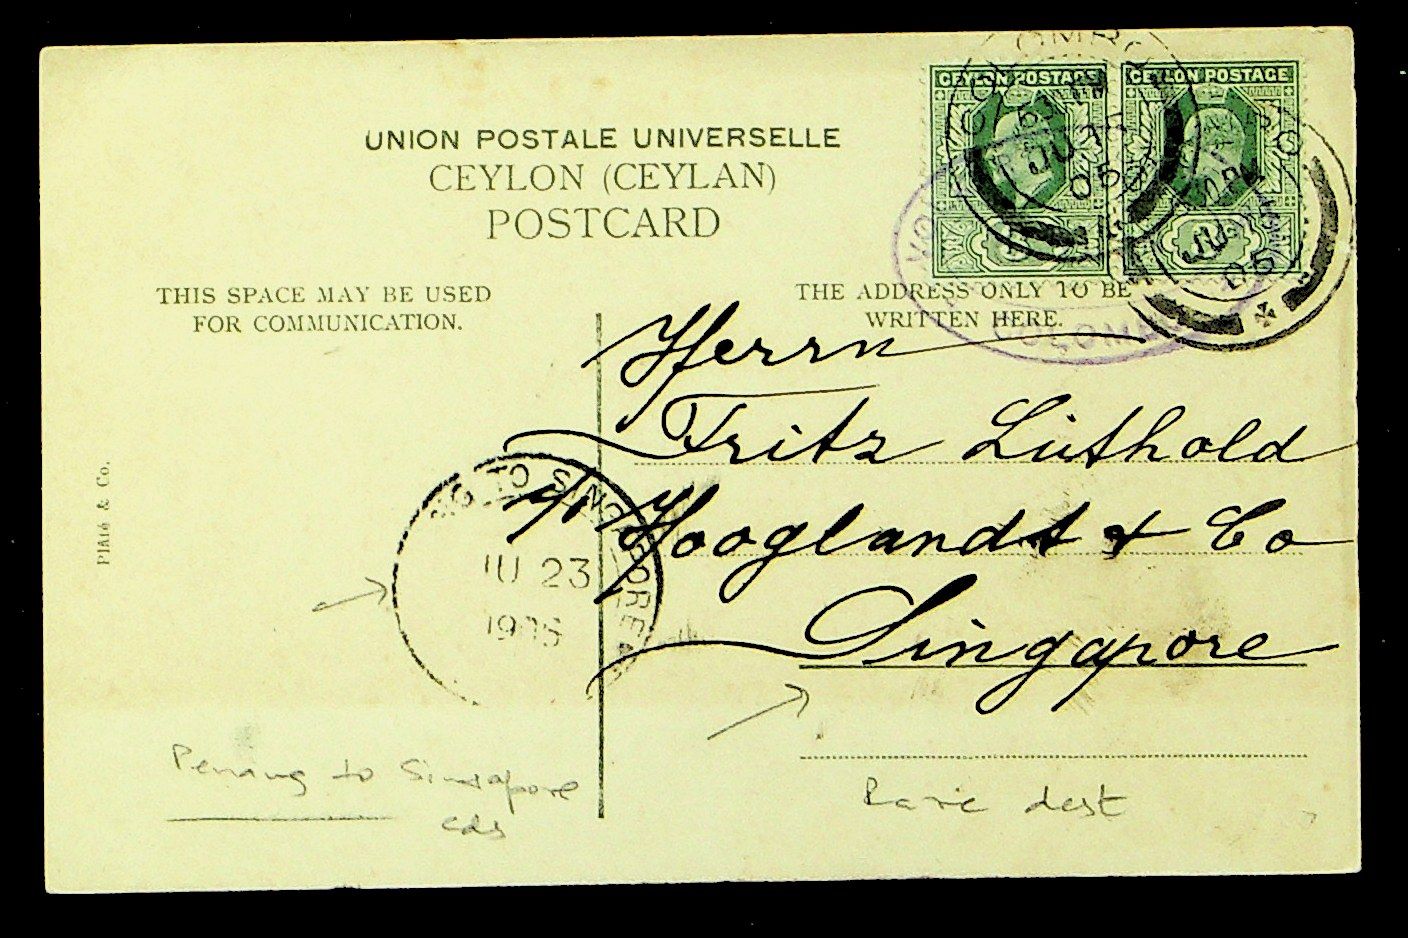 CEYLON POSTAGE CEYLON POSTAGE
UNION POSTALE UNIVERSELLE
CEYLON (CEYLAN)
POSTCARD
THIS SPACE MAY BE USED
FOR COMMUNICATION.
THE ADDRESS ONLY TO BE
WRITTEN HERE.
Herrn
Fritz Lüthold
Hooglandt & Co
Singapore
TO SINGAPORE
JU 23
Plâté & Co.
Penang to Singapore
cds
Rare dest